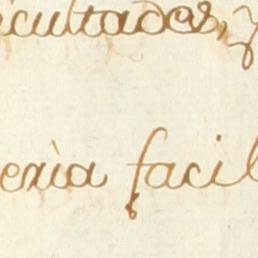 icultades, y
eria facil